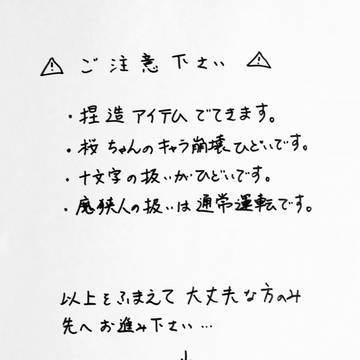 ⚠ ご注意下さい ⚠
・捏造アイテムでてきます。
・桜ちゃんのキャラ崩壊ひどいです。
・十文字の扱いがひどいです。
・魔狭人の扱いは通常運転です。
以上をふまえて大丈夫な方のみ
先へお進み下さい…
↓